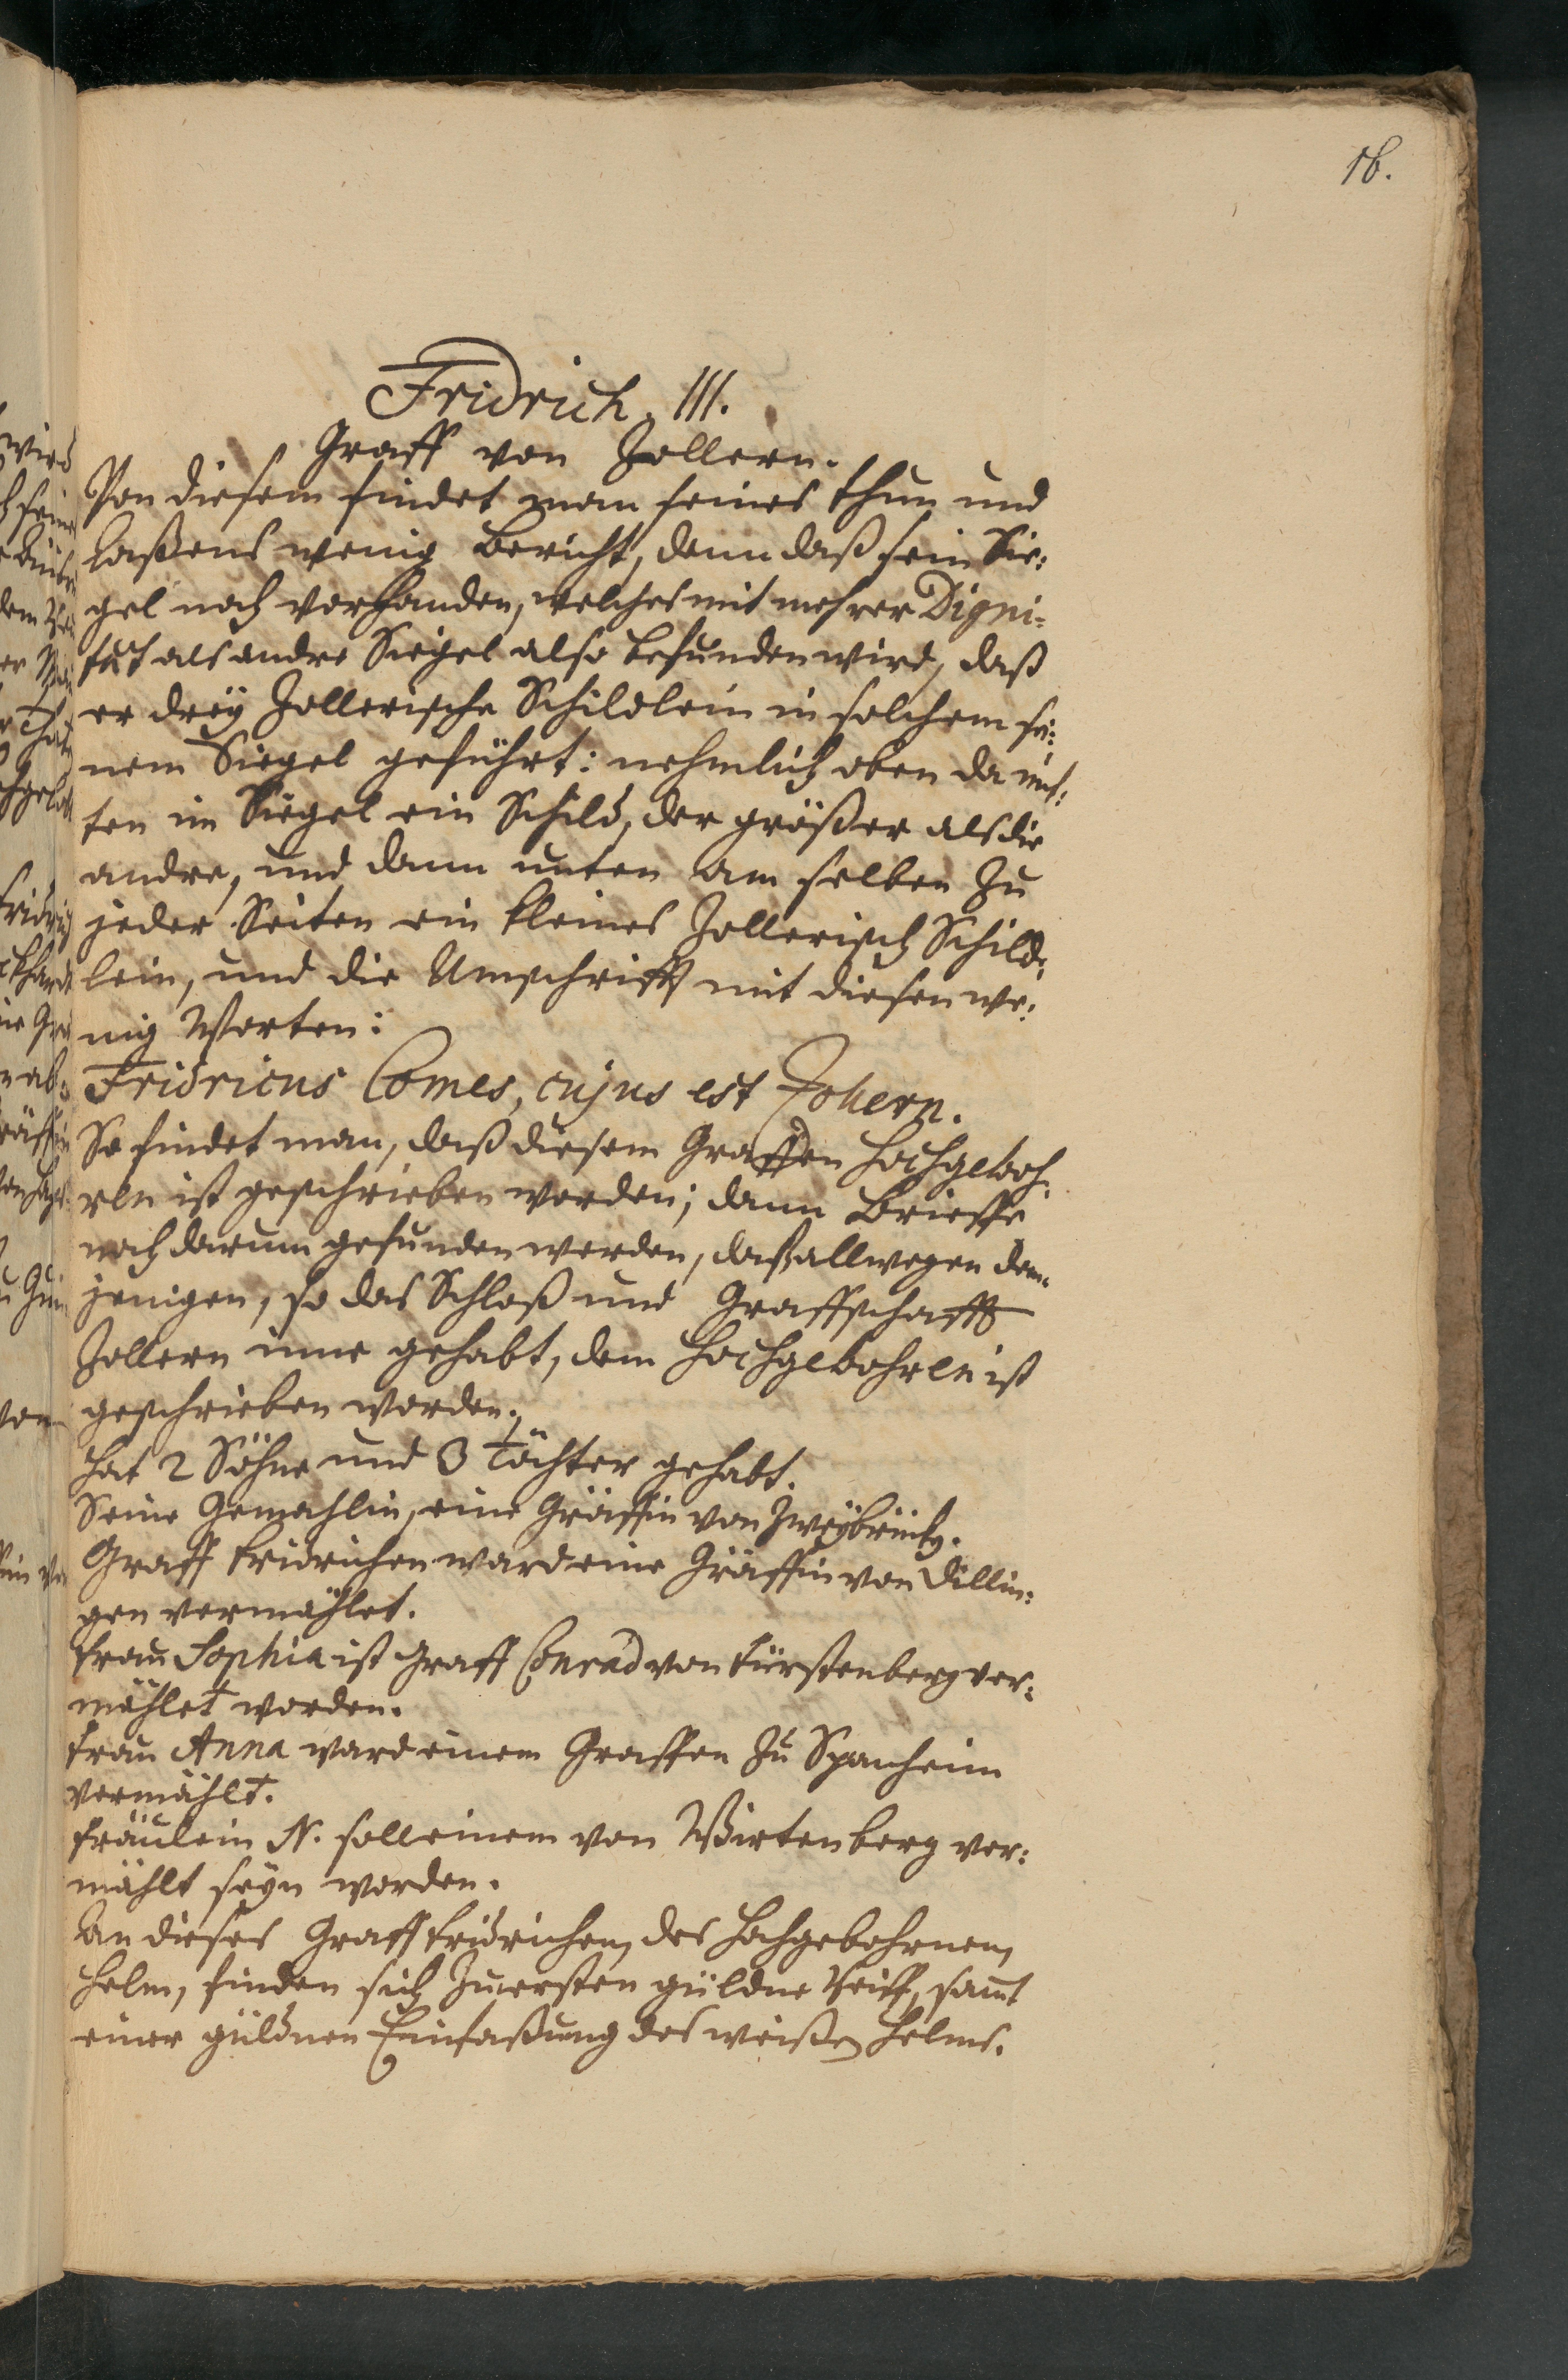 16.
Fridrich. III.
Graff von Zollern.
Von diesem findet man seines thun und
laßens wenig bericht, denn daß sein Sie:
gel noch vorhanden, welches mit mehrer Digni-
tät als andre Siegel also befunden wird, daß
er dreÿ Zollerische Schildlein in solchem sei:
nem Siegel geführt: nehmlich oben da mit:
ten im Siegel ein Schild, der größer als die
andre, und dann unten am selben zu
jeder Seiten ein kleines Zollerisch Schild:
lein, und die Umschrifft mit diesen we:
nig Worten:
Fridricus Comes, cujus est Zollern.
So findet man, daß diesem Graffen hochgeboh:
ren ist geschrieben worden; dann Brieffe
noch darum gefunden werden, daß allwegen dem:
jenigen, so das Schloß und Graffschafft
Zollern inne gehabt, dem hochgebohren ist
geschrieben worden.
hat 2 Söhne und 3 Töchter gehabt.
Seine Gemahlin, eine Gräffin von Zweÿbrück.
Graff fridrichen ward eine Gräffin von Dillin:
gen vermählet.
frau Sophia ist Graff Conrad von Fürstenberg ver:
mählet worden.
frau Anna ward einem Graffen zu Spanheim
vermählt.
fräulein N. soll einem von Wirtenberg ver:
mählt seyn worden.
An dieses Graff fridrichen, des hochgebohrnen,
helm, finden sich zuersten güldne Reiff, samt
einer güldnen Einfaßung des weißen helms.